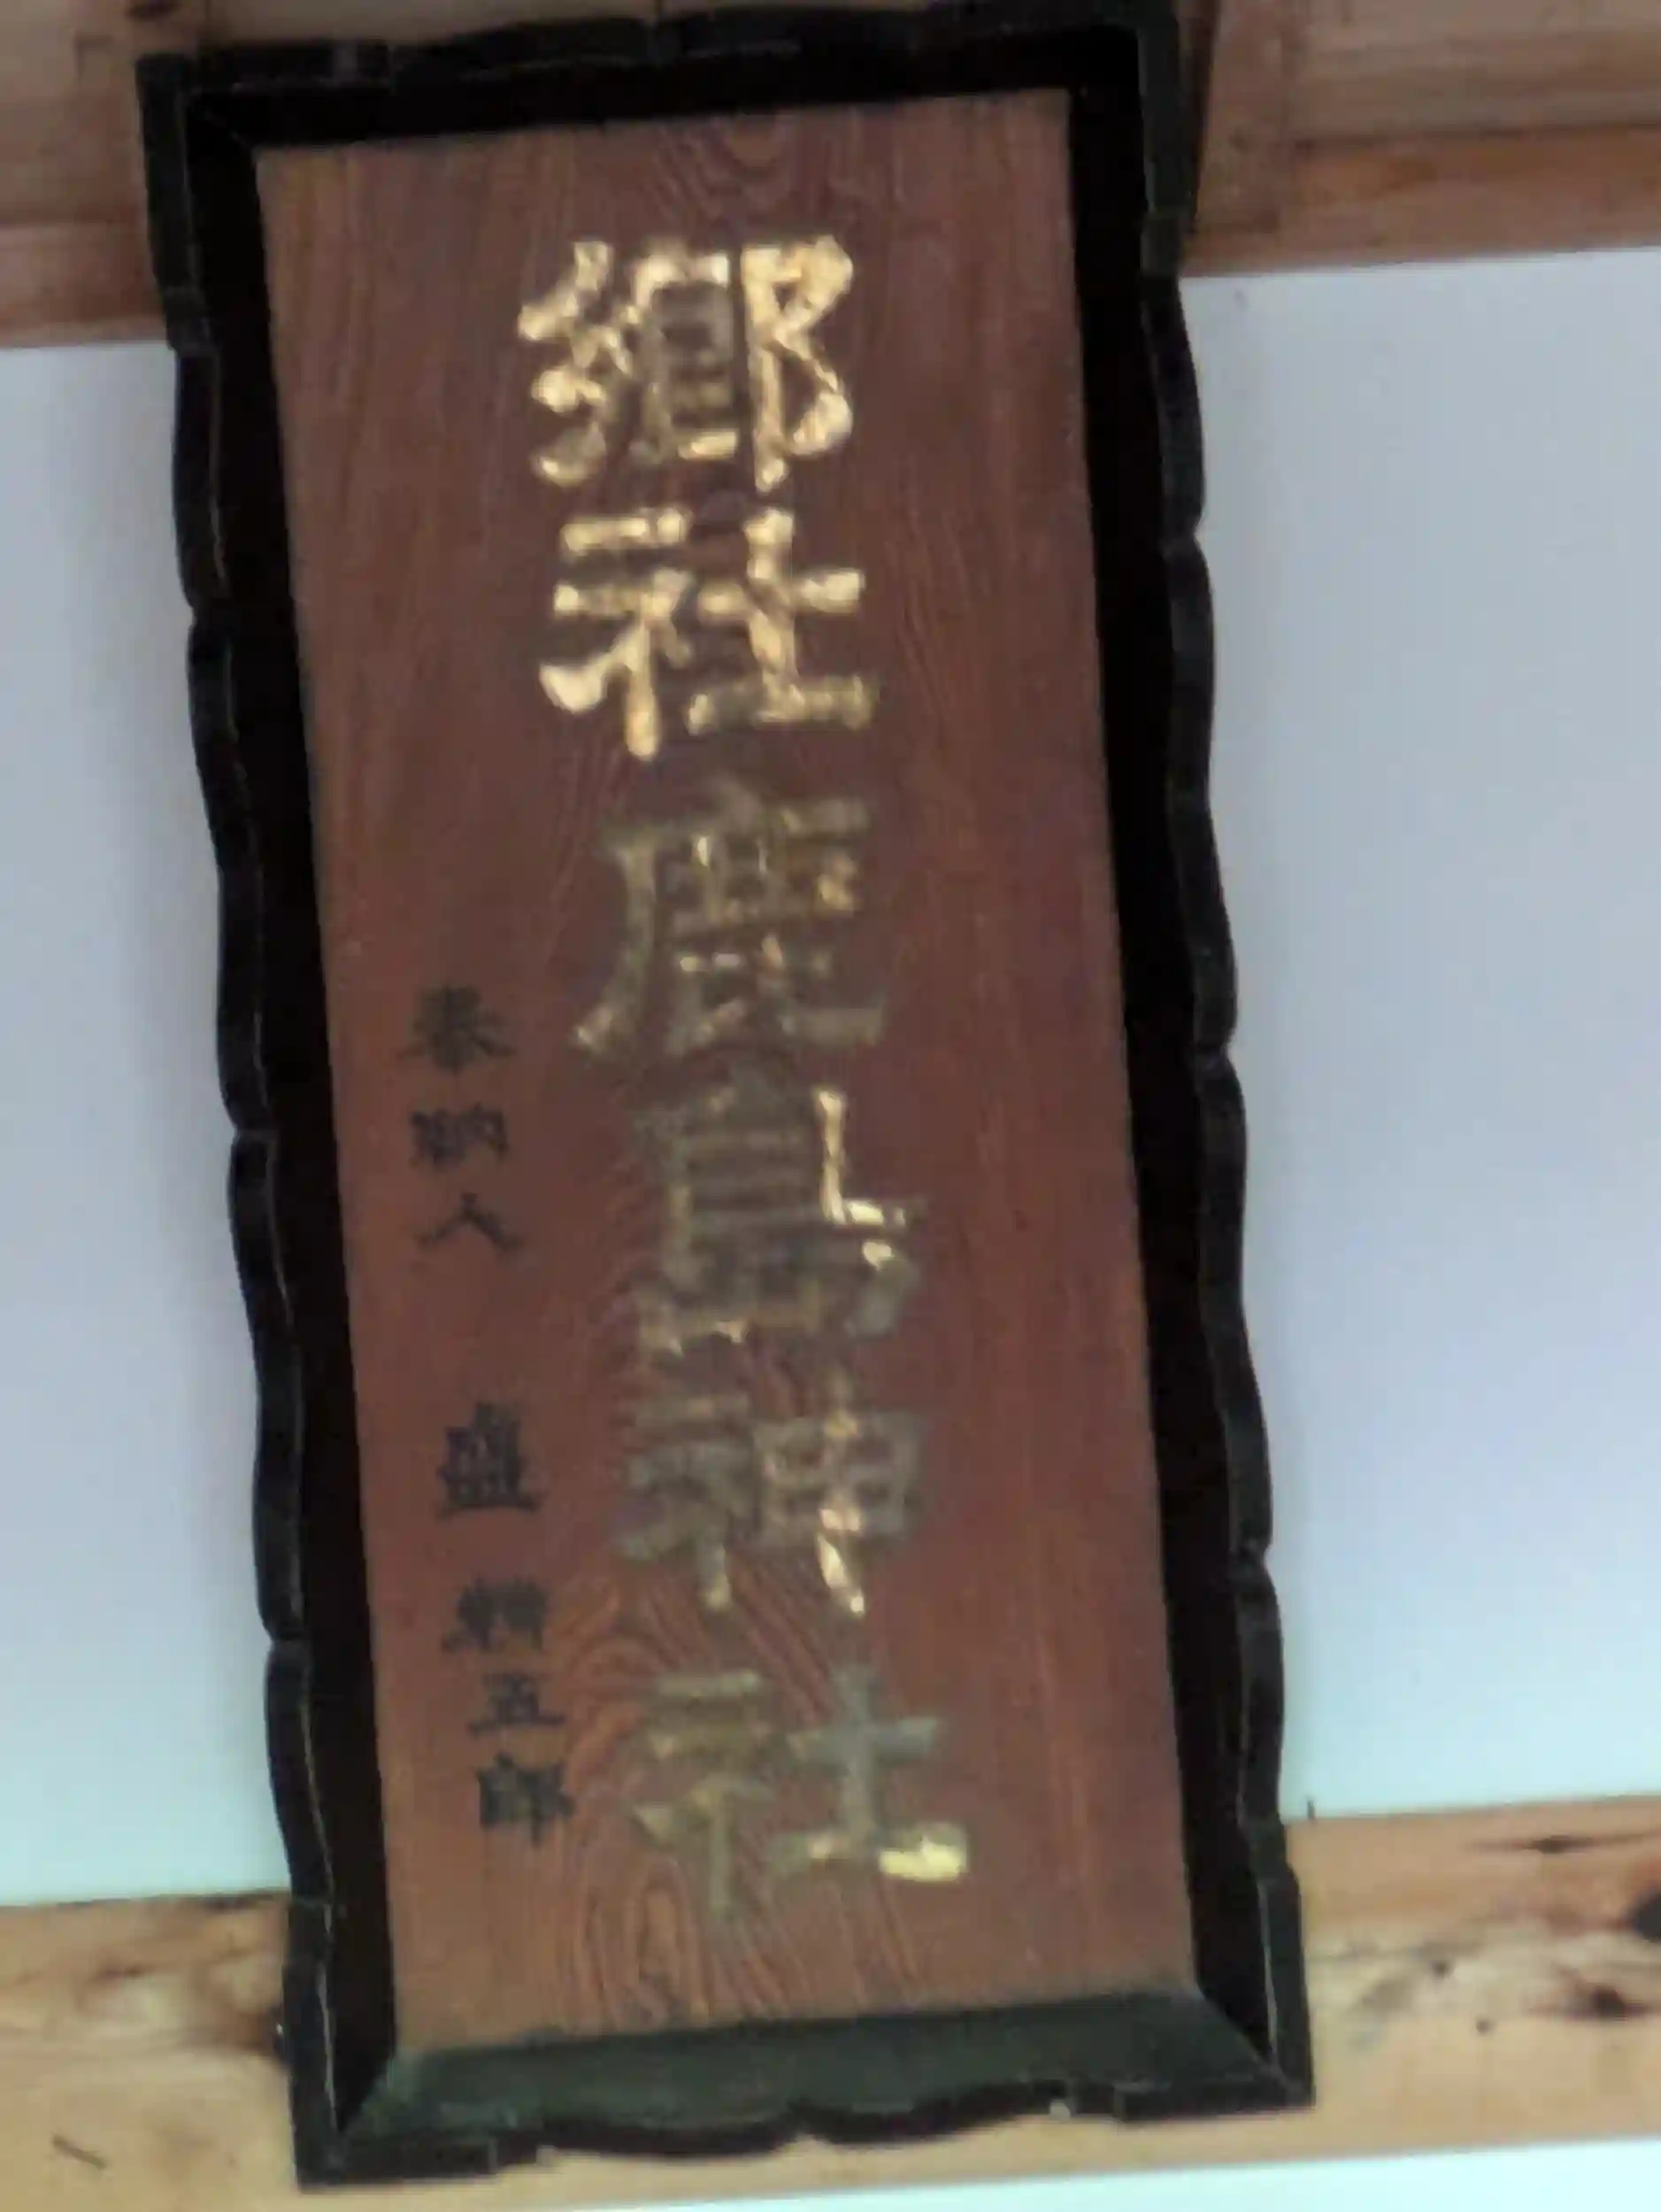 鄉社鹿島神社
奉納人 盛 五郎